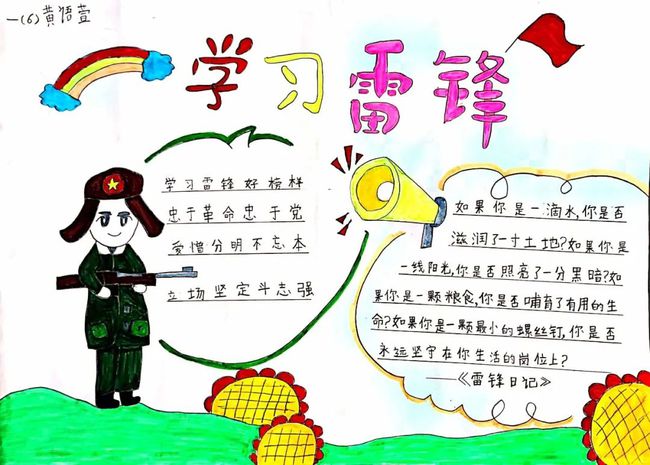 一(6)黄语萱
学习雷锋
学习雷锋好榜样
忠于革命忠于党
爱憎分明不忘本
立场坚定斗志强
如果你是一滴水,你是否
滋润了一寸土地?如果你是
一线阳光,你是否照亮了一分黑暗?如
果你是一颗粮食,你是否哺育了有用的生
命?如果你是一颗最小的螺丝钉,你是否
永远坚守在你生活的岗位上?
——《雷锋日记》